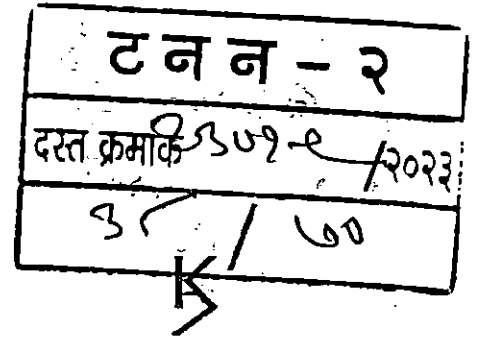 ट न न - २
दस्त क्रमांक /२०२३
३८ / ७०